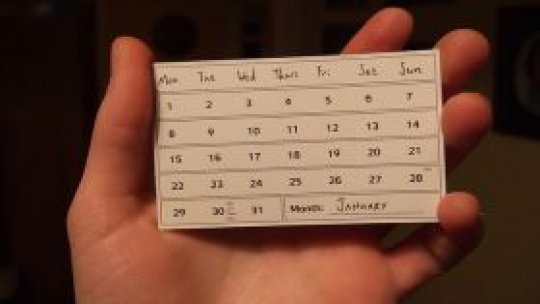 Mon Tue Wed Thurs Fri Sat Sun
1 2 3 4 5 6 7
8 9 10 11 12 13 14
15 16 17 18 19 20 21
22 23 24 25 26 27 28
29 30 31 Month: January